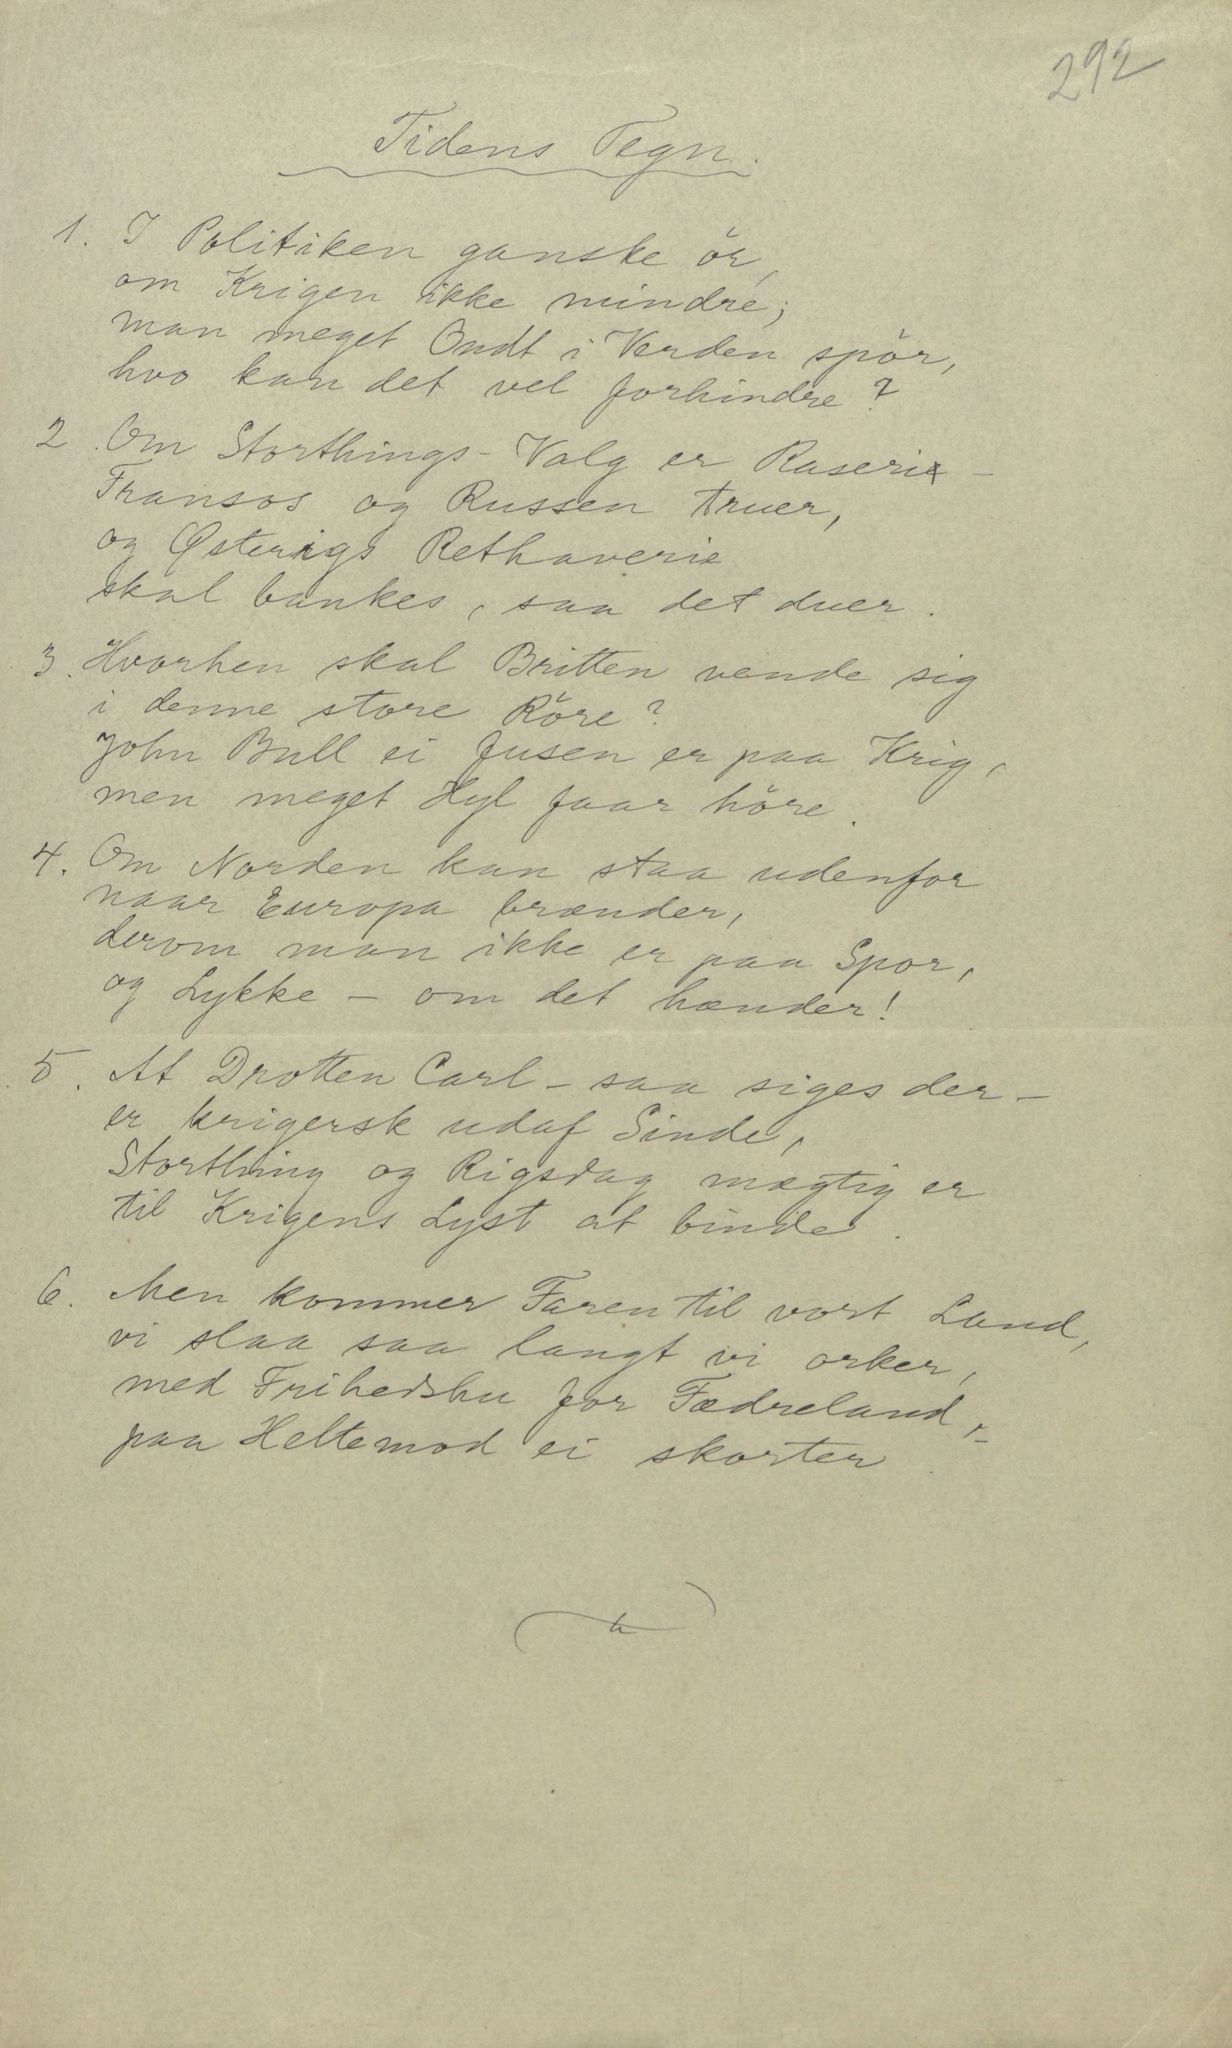 292
Tidens Tegn.
1. I Politiken ganske ör,
om Krigen ikke mindre;
man meget Ondt i Verden spör,
hvo kan det vel forhindre?
2. Om Storthings-Valg er Raseri -
Fransos og Russen truer,
og Østerigs Rethaveri
skal bankes, saa det duer.
3. Hvorhen skal Britten vende sig
i denne store Röre?
John Bull ei fusen er paa Krig,
men meget Hyl faar höre.
4. Om Norden kan staa udenfor
naar Europa brænder,
derom man ikke er paa Spor,
og Lykke - om det hænder!
5. At Drotten Carl - saa siges der -
er krigersk udaf Sinde,
Storthing og Rigsdag mægtig er
til Krigens Lyst at binde.
6. Men kommer Faren til vort Land,
vi slaa saa langt vi orker,
med Frihedshu for Fædreland, -
paa Heltemod ei skorter.